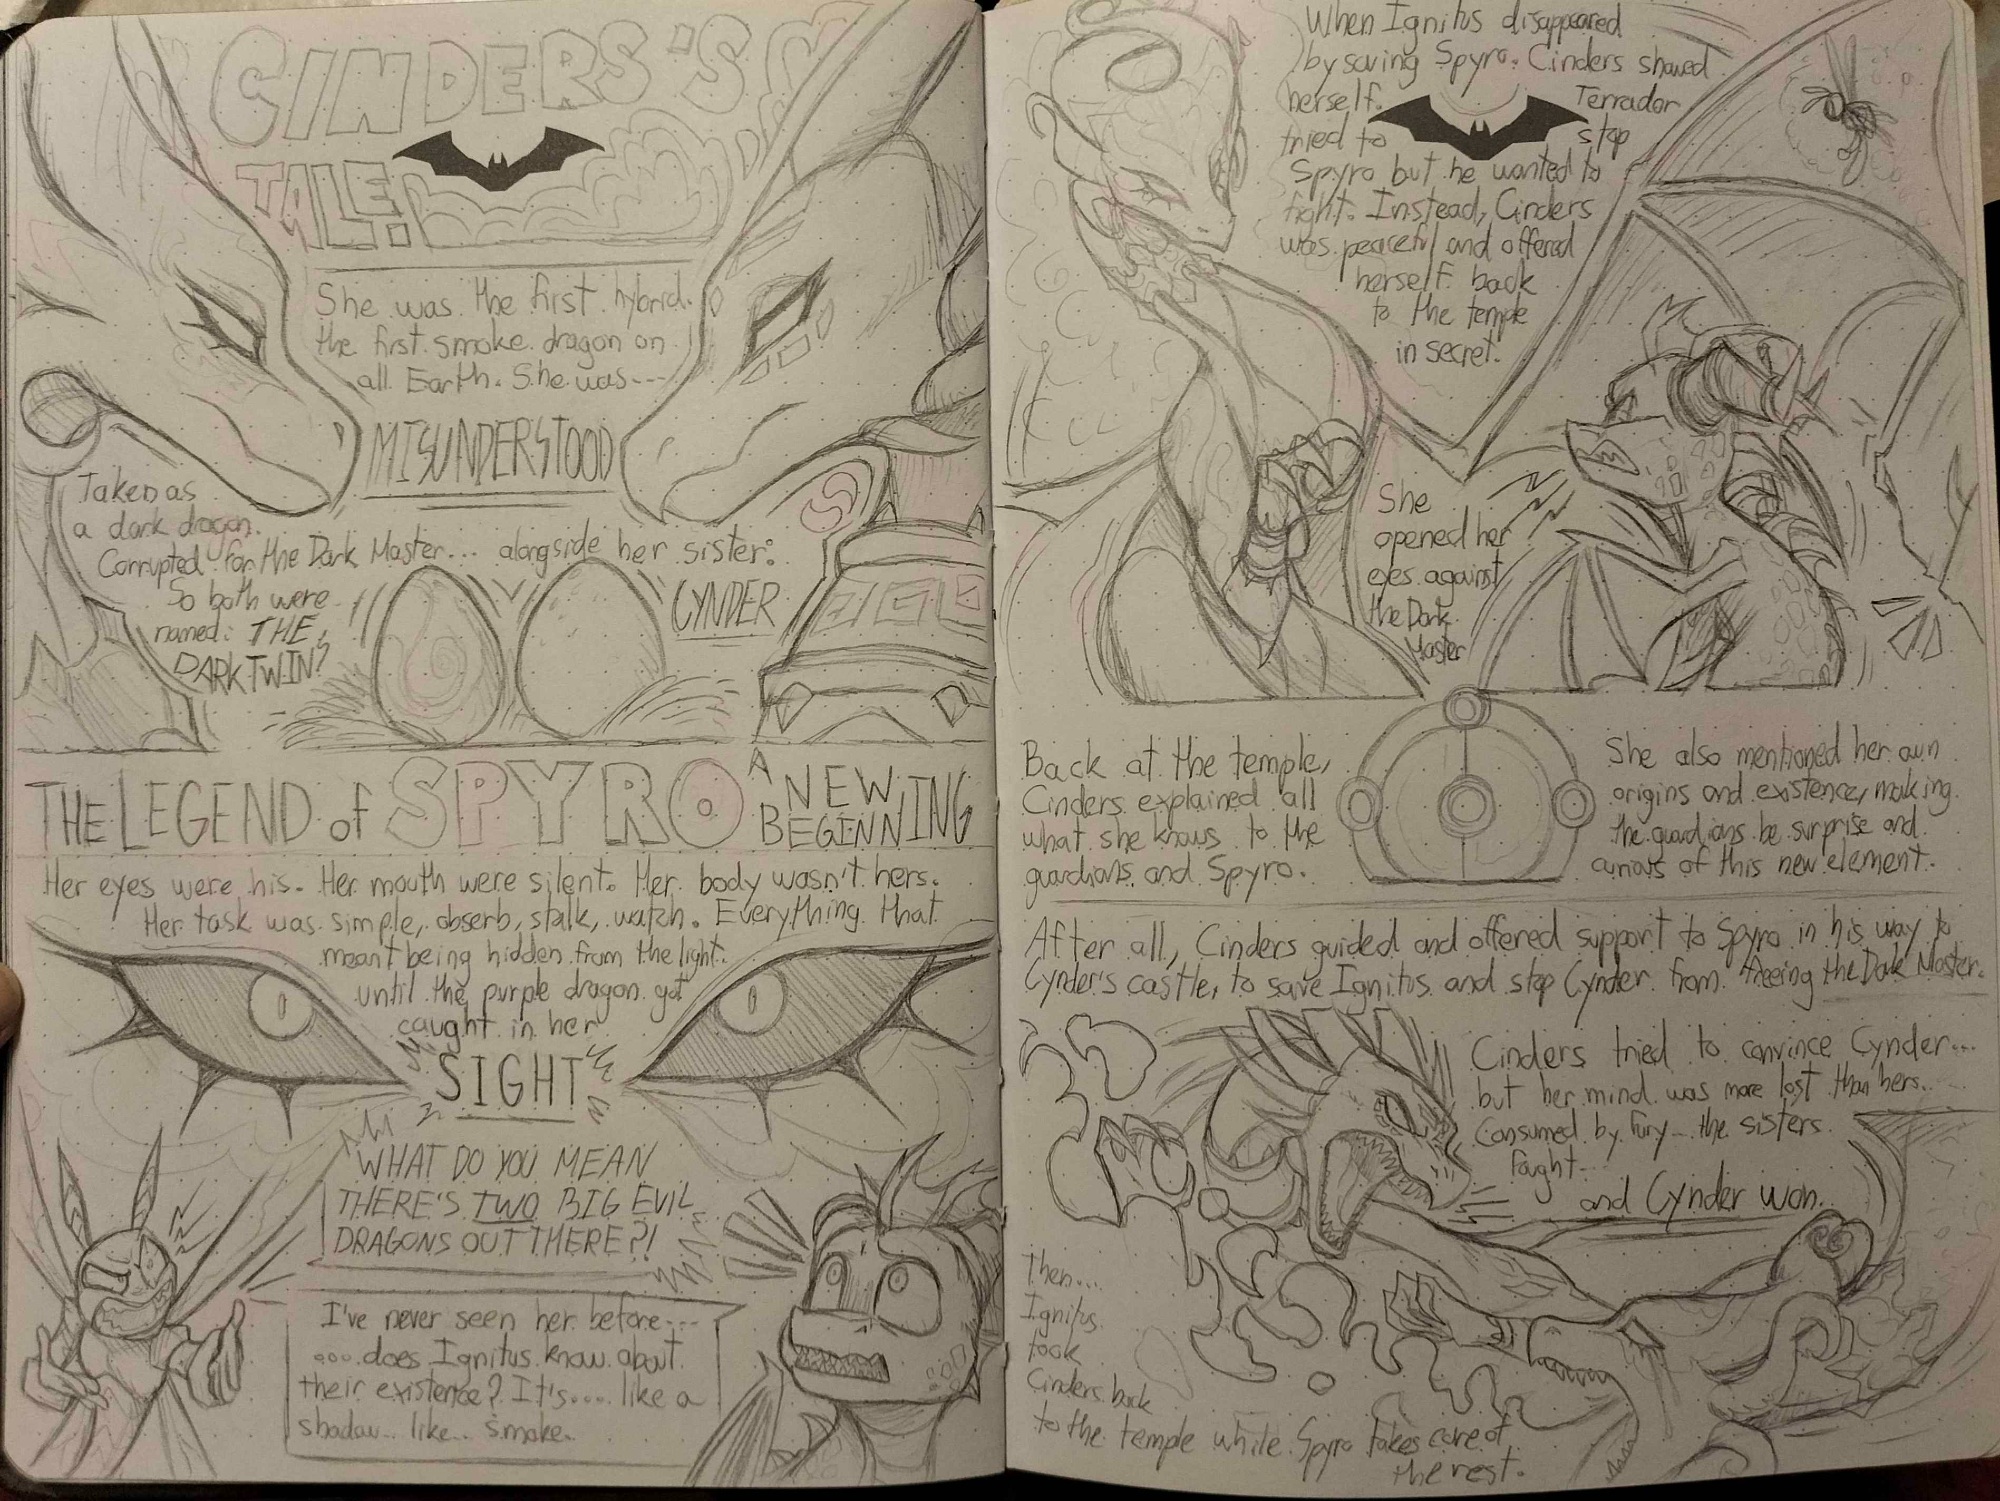 CINDERS'S
TALE:
She was the first hybrid.
the first smoke dragon on
all Earth. She was...
MISUNDERSTOOD
Taken as
a dark dragon.
Corrupted for the Dark Master... alongside her sister:
CYNDER
So both were
named: THE
DARK TWINS
THE LEGEND of SPYRO A NEW
BEGINNING
Her eyes were his. Her mouth were silent. Her body wasn't hers.
Her task was simple, absorb, stalk, watch. Everything that
meant being hidden from the light.
until the purple dragon got
caught in her
SIGHT
WHAT DO YOU MEAN
THERE'S TWO BIG EVIL
DRAGONS OUT THERE?!
I've never seen her before....
....does Ignitus know about
their existence? It's.... like a
shadow.. like.. smoke.
When Ignitus disappeared
by saving Spyro. Cinders showed
herself. Terrador
tried to stop
Spyro but he wanted to
fight. Instead, Cinders
was peaceful and offered
herself back
to the temple
in secret.
She
opened her
eyes against
the Dark
Master
Back at the temple,
Cinders explained all
what she knows to the
guardians and Spyro.
She also mentioned her own
origins and existence, making
the guardians be surprise and
curious of this new element.
After all, Cinders guided and offered support to Spyro in his way to
Cynder's castle, to save Ignitus and stop Cynder from freeing the Dark Master.
Cinders tried to convince Cynder...
but her mind was more lost than hers..
Consumed by fury... the sisters
fought...
and Cynder won.
Then...
Ignitus
took
Cinders back
to the temple while Spyro takes care of
the rest.